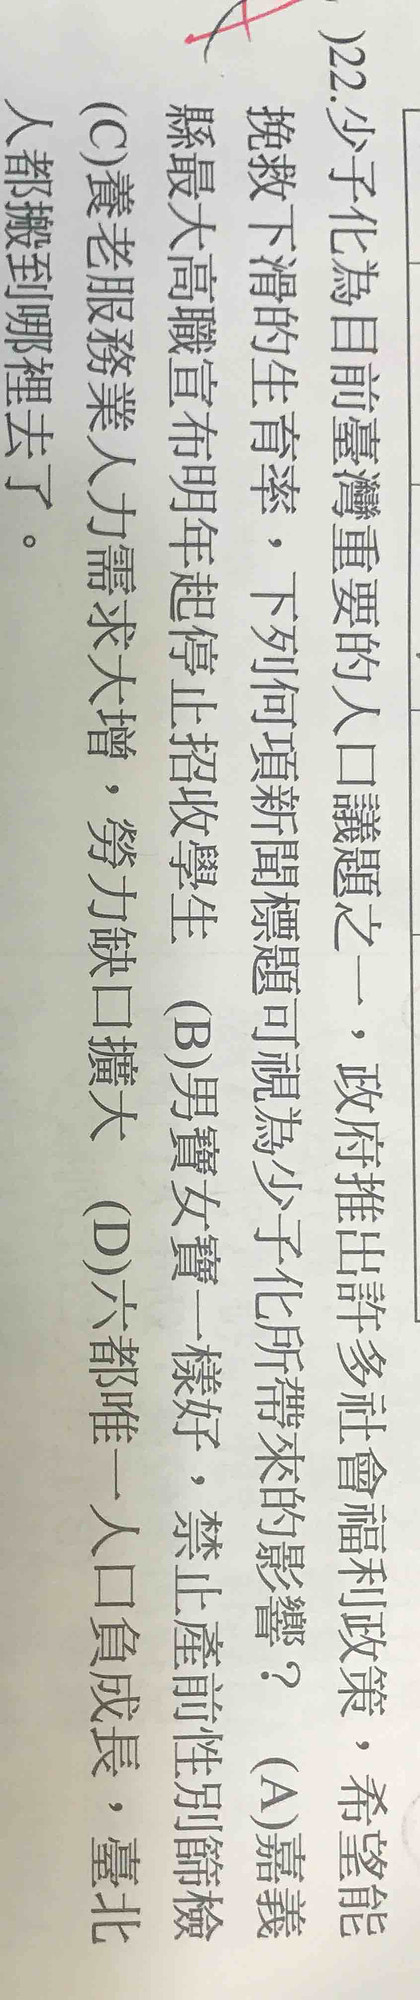 )22.少子化為目前臺灣重要的人口議題之一，政府推出許多社會福利政策，希望能
挽救下滑的生育率，下列何項新聞標題可視為少子化所帶來的影響？ (A)嘉義
縣最大高職宣布明年起停止招收學生 (B)男寶女寶一樣好，禁止產前性別篩檢
(C)養老服務業人力需求大增，勞力缺口擴大 (D)六都唯一人口負成長，臺北
人都搬到哪裡去了。